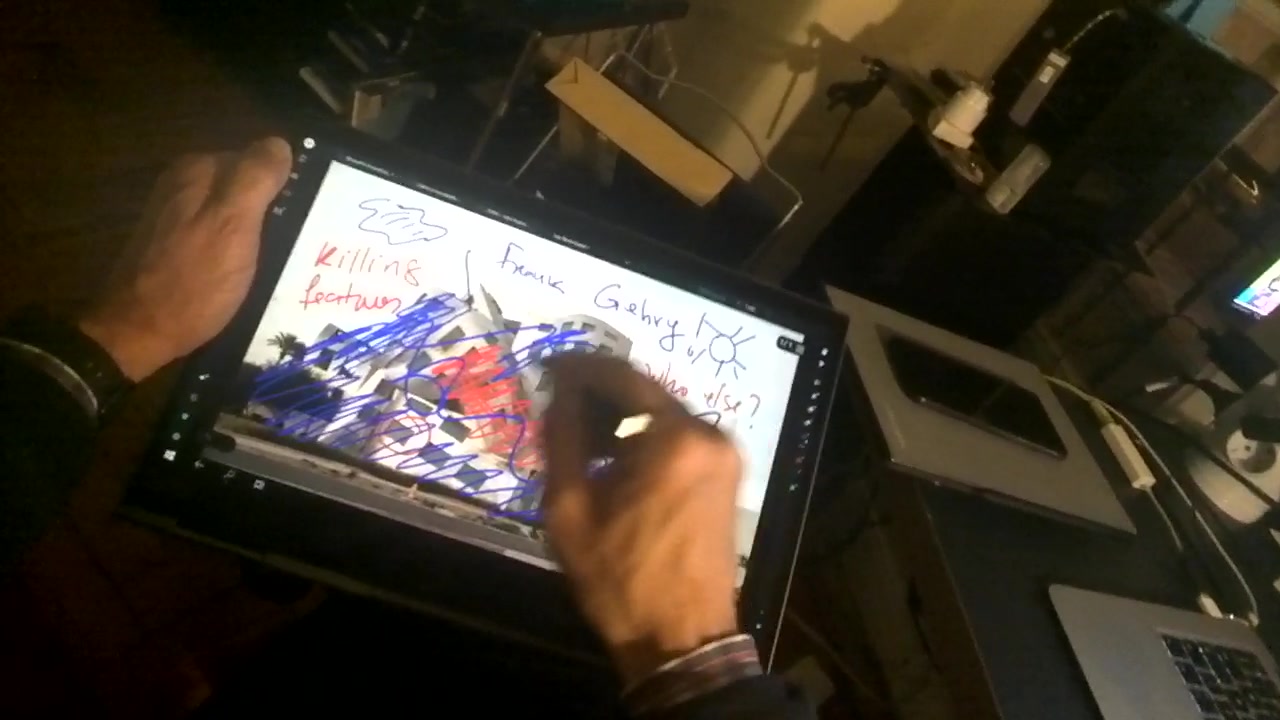 Killing
features
Frank
Gehry!
who else?
1/1